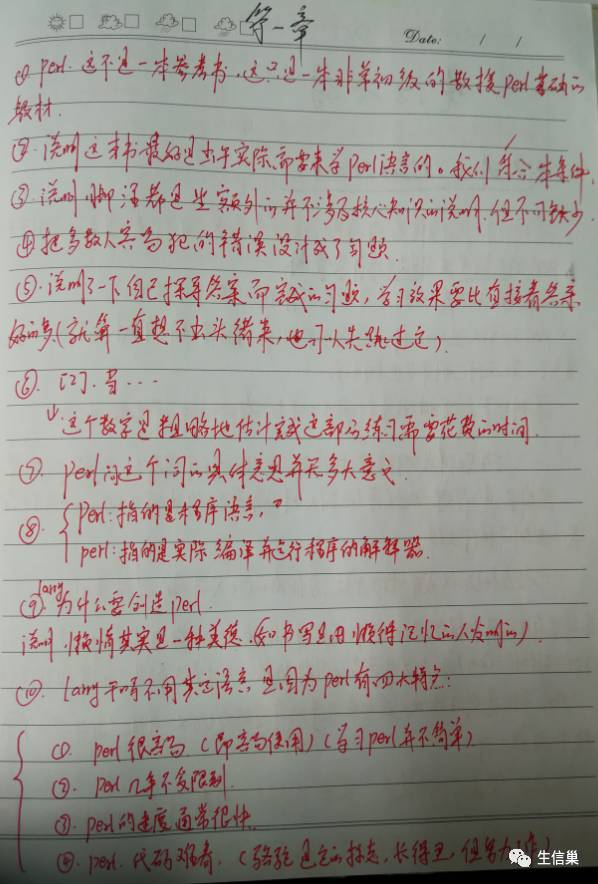 第一章
Date: / /
① perl. 这不是一本参考书,这只是一本非常初级的教授perl基础的
教材.
②. 说明这本书最好是出于实际需要来学perl语言的。我们符合本条件.
③. 说明.脚注都是些额外而并不涉及核心知识的说明.但不可缺少.
④ 把多数人容易犯的错误设计成了习题.
⑤. 说明了一下自己探寻答案而完成的习题,学习效果要比直接看答案
好的多(就算一直想不出头绪来,也可以失败过它).
⑥. [2].当···
↓这个数字是粗略地估计完成这部分练习需要花费的时间.
⑦. perl的这个词的具体意思并无多大意义.
⑧. Perl:指的是程序语言,
perl:指的是实际编译并运行程序的解释器.
⑨ larry为什么要创造perl.
说明.懒惰其实是一种美德.(如书写是由懒得记忆的人发明的).
⑩. larry干嘛不用其它语言 是因为perl有四大特点:
①. perl很容易(即容易使用)(学习perl并不简单)
②. perl几乎不受限制.
③. perl的速度通常很快.
④. perl.代码难看.(骆驼是它的标志,长得丑,但努力工作)
生信巢